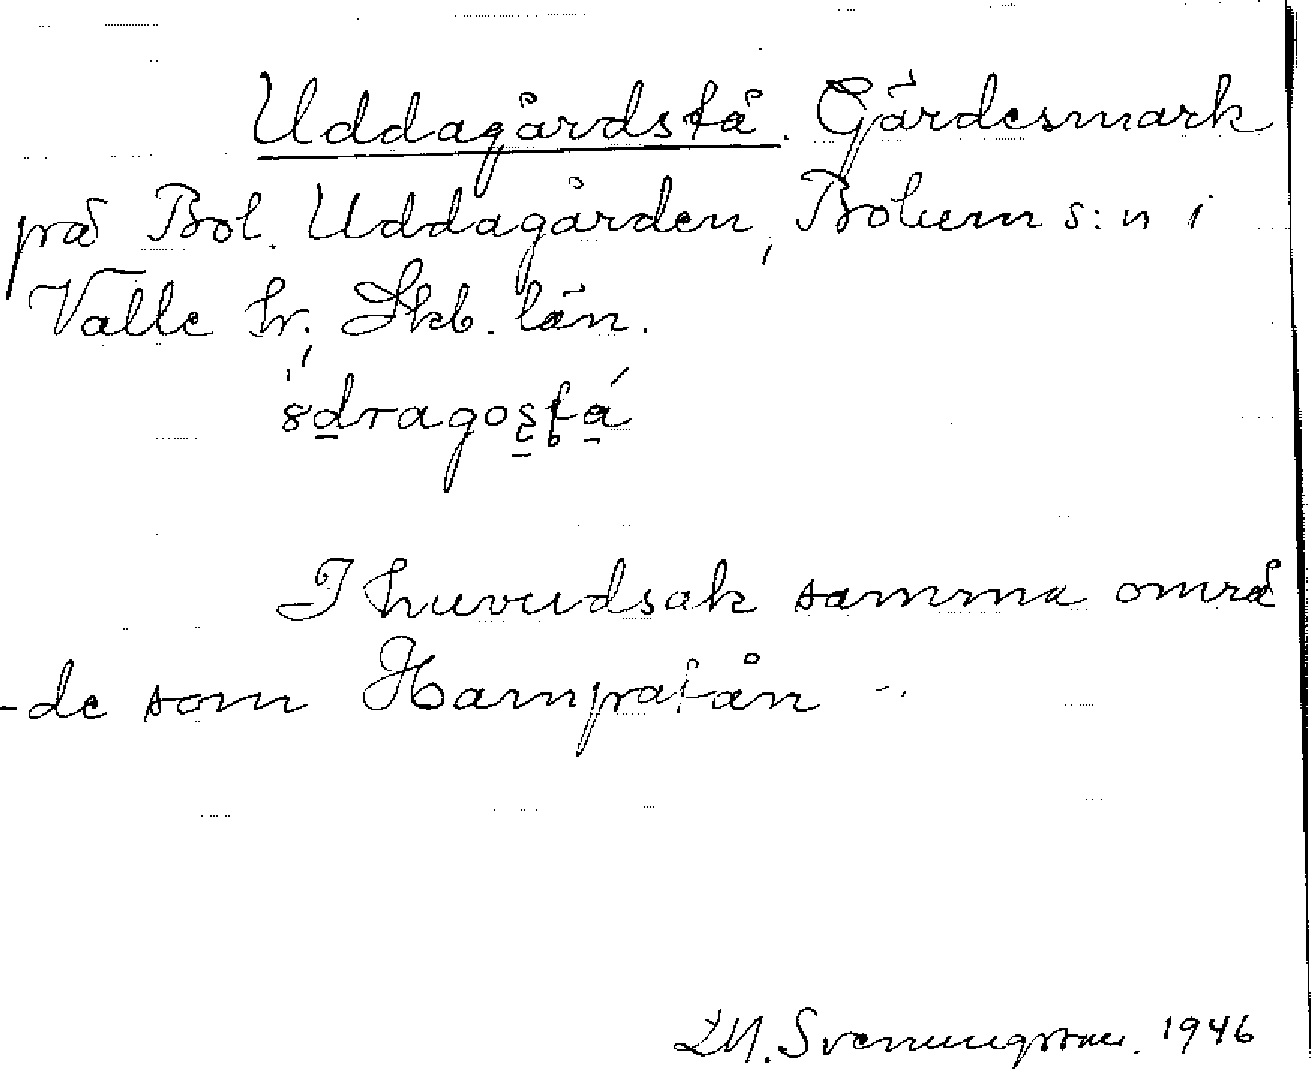 Uddagårdsfå. Gärdesmark
på Bol. Uddagården, Bolum s:n i
Valle hr, Skb. län.
I huvudsak samma områ
-de som Hampafån -..
Svenungsson. 1946